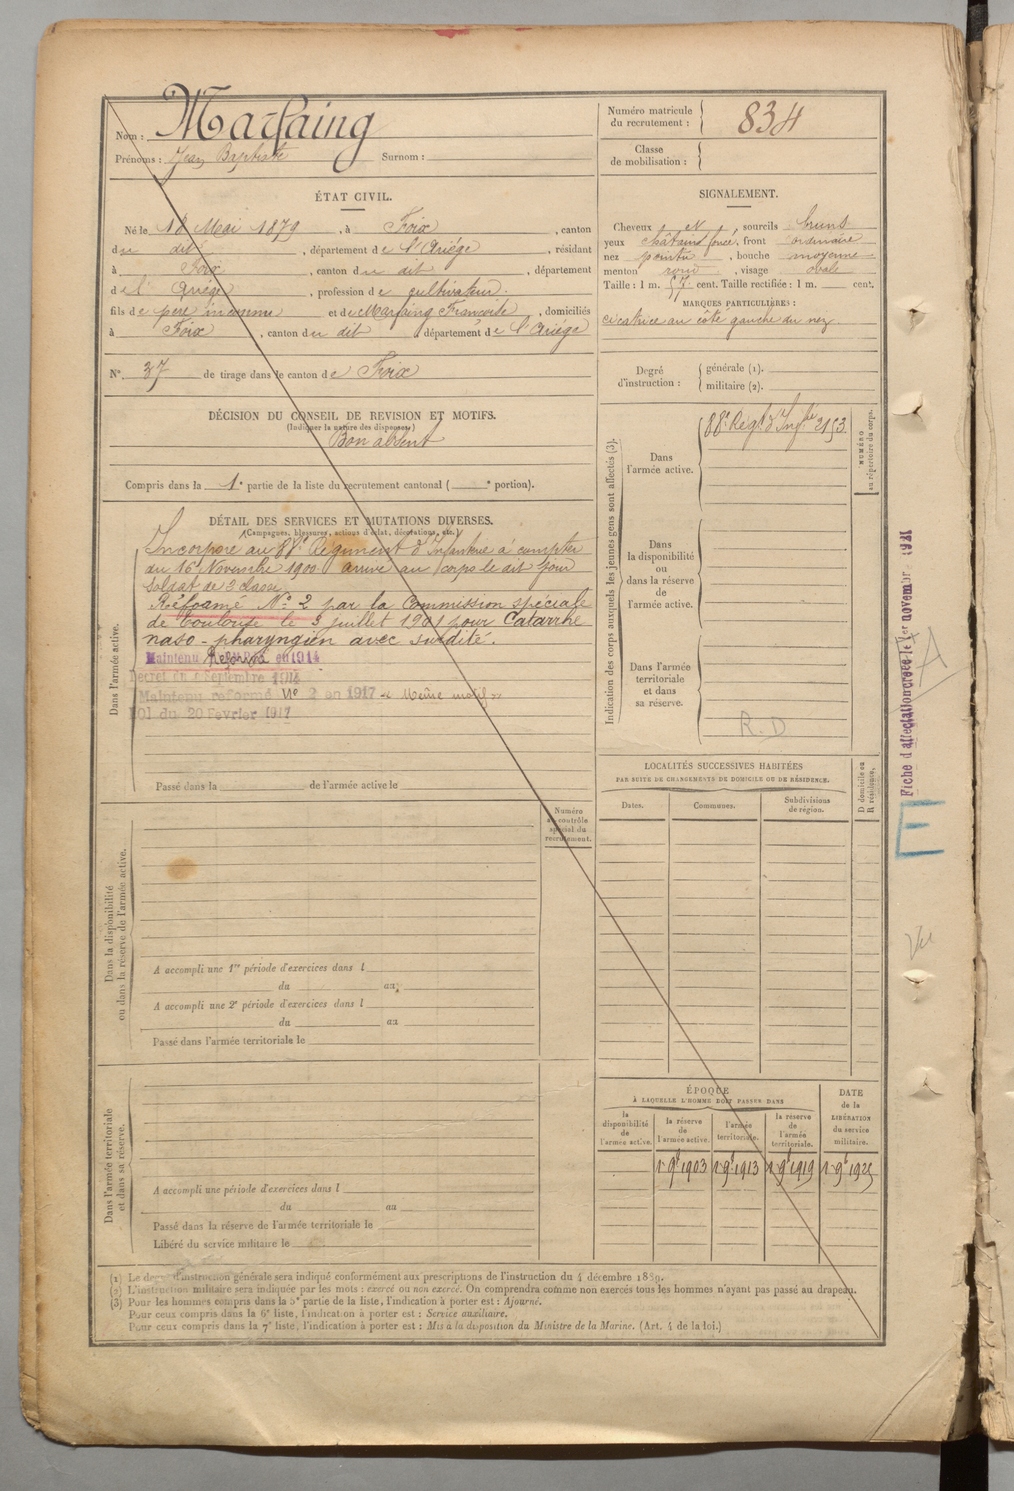 Nom : Marfaing
Prénoms : Jean Baptiste Surnom :
Numéro matricule du recrutement : 834
Classe de mobilisation :
ÉTAT CIVIL.
Né le 18 Mai 1879, à Foix, canton
du dit, département de l'Ariége, résidant
à Foix, canton du dit, département
de l' Ariége, profession de cultivateur.
fils de père inconnu et de Marfaing Françoise, domiciliés
à Foix, canton du dit département de l'Ariége
N° 37 de tirage dans le canton de Foix
SIGNALEMENT.
Cheveux et, sourcils bruns
yeux châtains foncé, front ordinaire
nez pointu, bouche moyenne
menton rond, visage ovale
Taille : 1 m. 57 cent. Taille rectifiée : 1 m. cent.
MARQUES PARTICULIÈRES :
cicatrice au côté gauche du nez
Degré d'instruction : générale (1).
militaire (2).
DÉCISION DU CONSEIL DE REVISION ET MOTIFS.
(Indiquer la nature des dispenses)
Bon absent
Compris dans la 1e partie de la liste du recrutement cantonal ( e portion).
DÉTAIL DES SERVICES ET MUTATIONS DIVERSES.
(Campagnes, blessures, actions d'éclat, décorations, etc.)
Dans l'armée active.
Incorporé au 88e Régiment d'Infanterie à compter
du 16 Novembre 1900. arrivé au corps le dit jour
soldat de 2e classe
Réformé N° 2 par la Commission spéciale
de Toulouse le 3 juillet 1901 pour Catarrhe
naso-pharyngien avec surdité.
Maintenu Réformé en 1914
Décret du 9 Septembre 1914
Maintenu reformé N° 2 en 1917 « Même motif »
LOI du 20 Février 1917
Passé dans la de l'armée active le
Indication des corps auxquels les jeunes gens sont affectés (3).
Dans l'armée active.
88e Régt d'Infie 2153
NUMÉRO au répertoire du corps.
Dans la disponibilité ou dans la réserve de l'armée active.
Dans l'armée territoriale et dans sa réserve.
R.D
LOCALITÉS SUCCESSIVES HABITÉES
PAR SUITE DE CHANGEMENTS DE DOMICILE OU DE RÉSIDENCE.
Dates. Communes. Subdivisions de région.
D domicile ou R résidence.
Numéro au contrôle spécial du recrutement.
Dans la disponibilité ou dans la réserve de l'armée active.
A accompli une 1re période d'exercices dans l
du au
A accompli une 2e période d'exercices dans l
du au
Passé dans l'armée territoriale le
Dans l'armée territoriale et dans sa réserve.
A accompli une période d'exercices dans l
du au
Passé dans la réserve de l'armée territoriale le
Libéré du service militaire le
ÉPOQUE
À LAQUELLE L'HOMME DOIT PASSER DANS
la disponibilité de l'armée active.
la réserve de l'armée active.
l'armée territoriale.
la réserve de l'armée territoriale.
DATE de la LIBÉRATION du service militaire.
1er 9bre 1903 1er 9bre 1913 1er 9bre 1919 1er 9bre 1925
(1) Le degré d'instruction générale sera indiqué conformément aux prescriptions de l'instruction du 4 décembre 1889.
(2) L'instruction militaire sera indiquée par les mots : exercé ou non exercé. On comprendra comme non exercés tous les hommes n'ayant pas passé au drapeau.
(3) Pour les hommes compris dans la 5e partie de la liste, l'indication à porter est : Ajourné.
Pour ceux compris dans la 6e liste, l'indication à porter est : Service auxiliaire.
Pour ceux compris dans la 7e liste, l'indication à porter est : Mis à la disposition du Ministre de la Marine. (Art. 4 de la loi.)
Fiche d'affectation créée le 1er novembre 1921
A
E
Vu